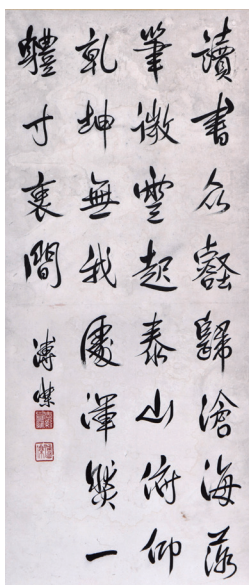 讀書众壑歸滄海落
筆微雲起泰山俯仰
乾坤無我處渾然一
體寸衷間
溥傑